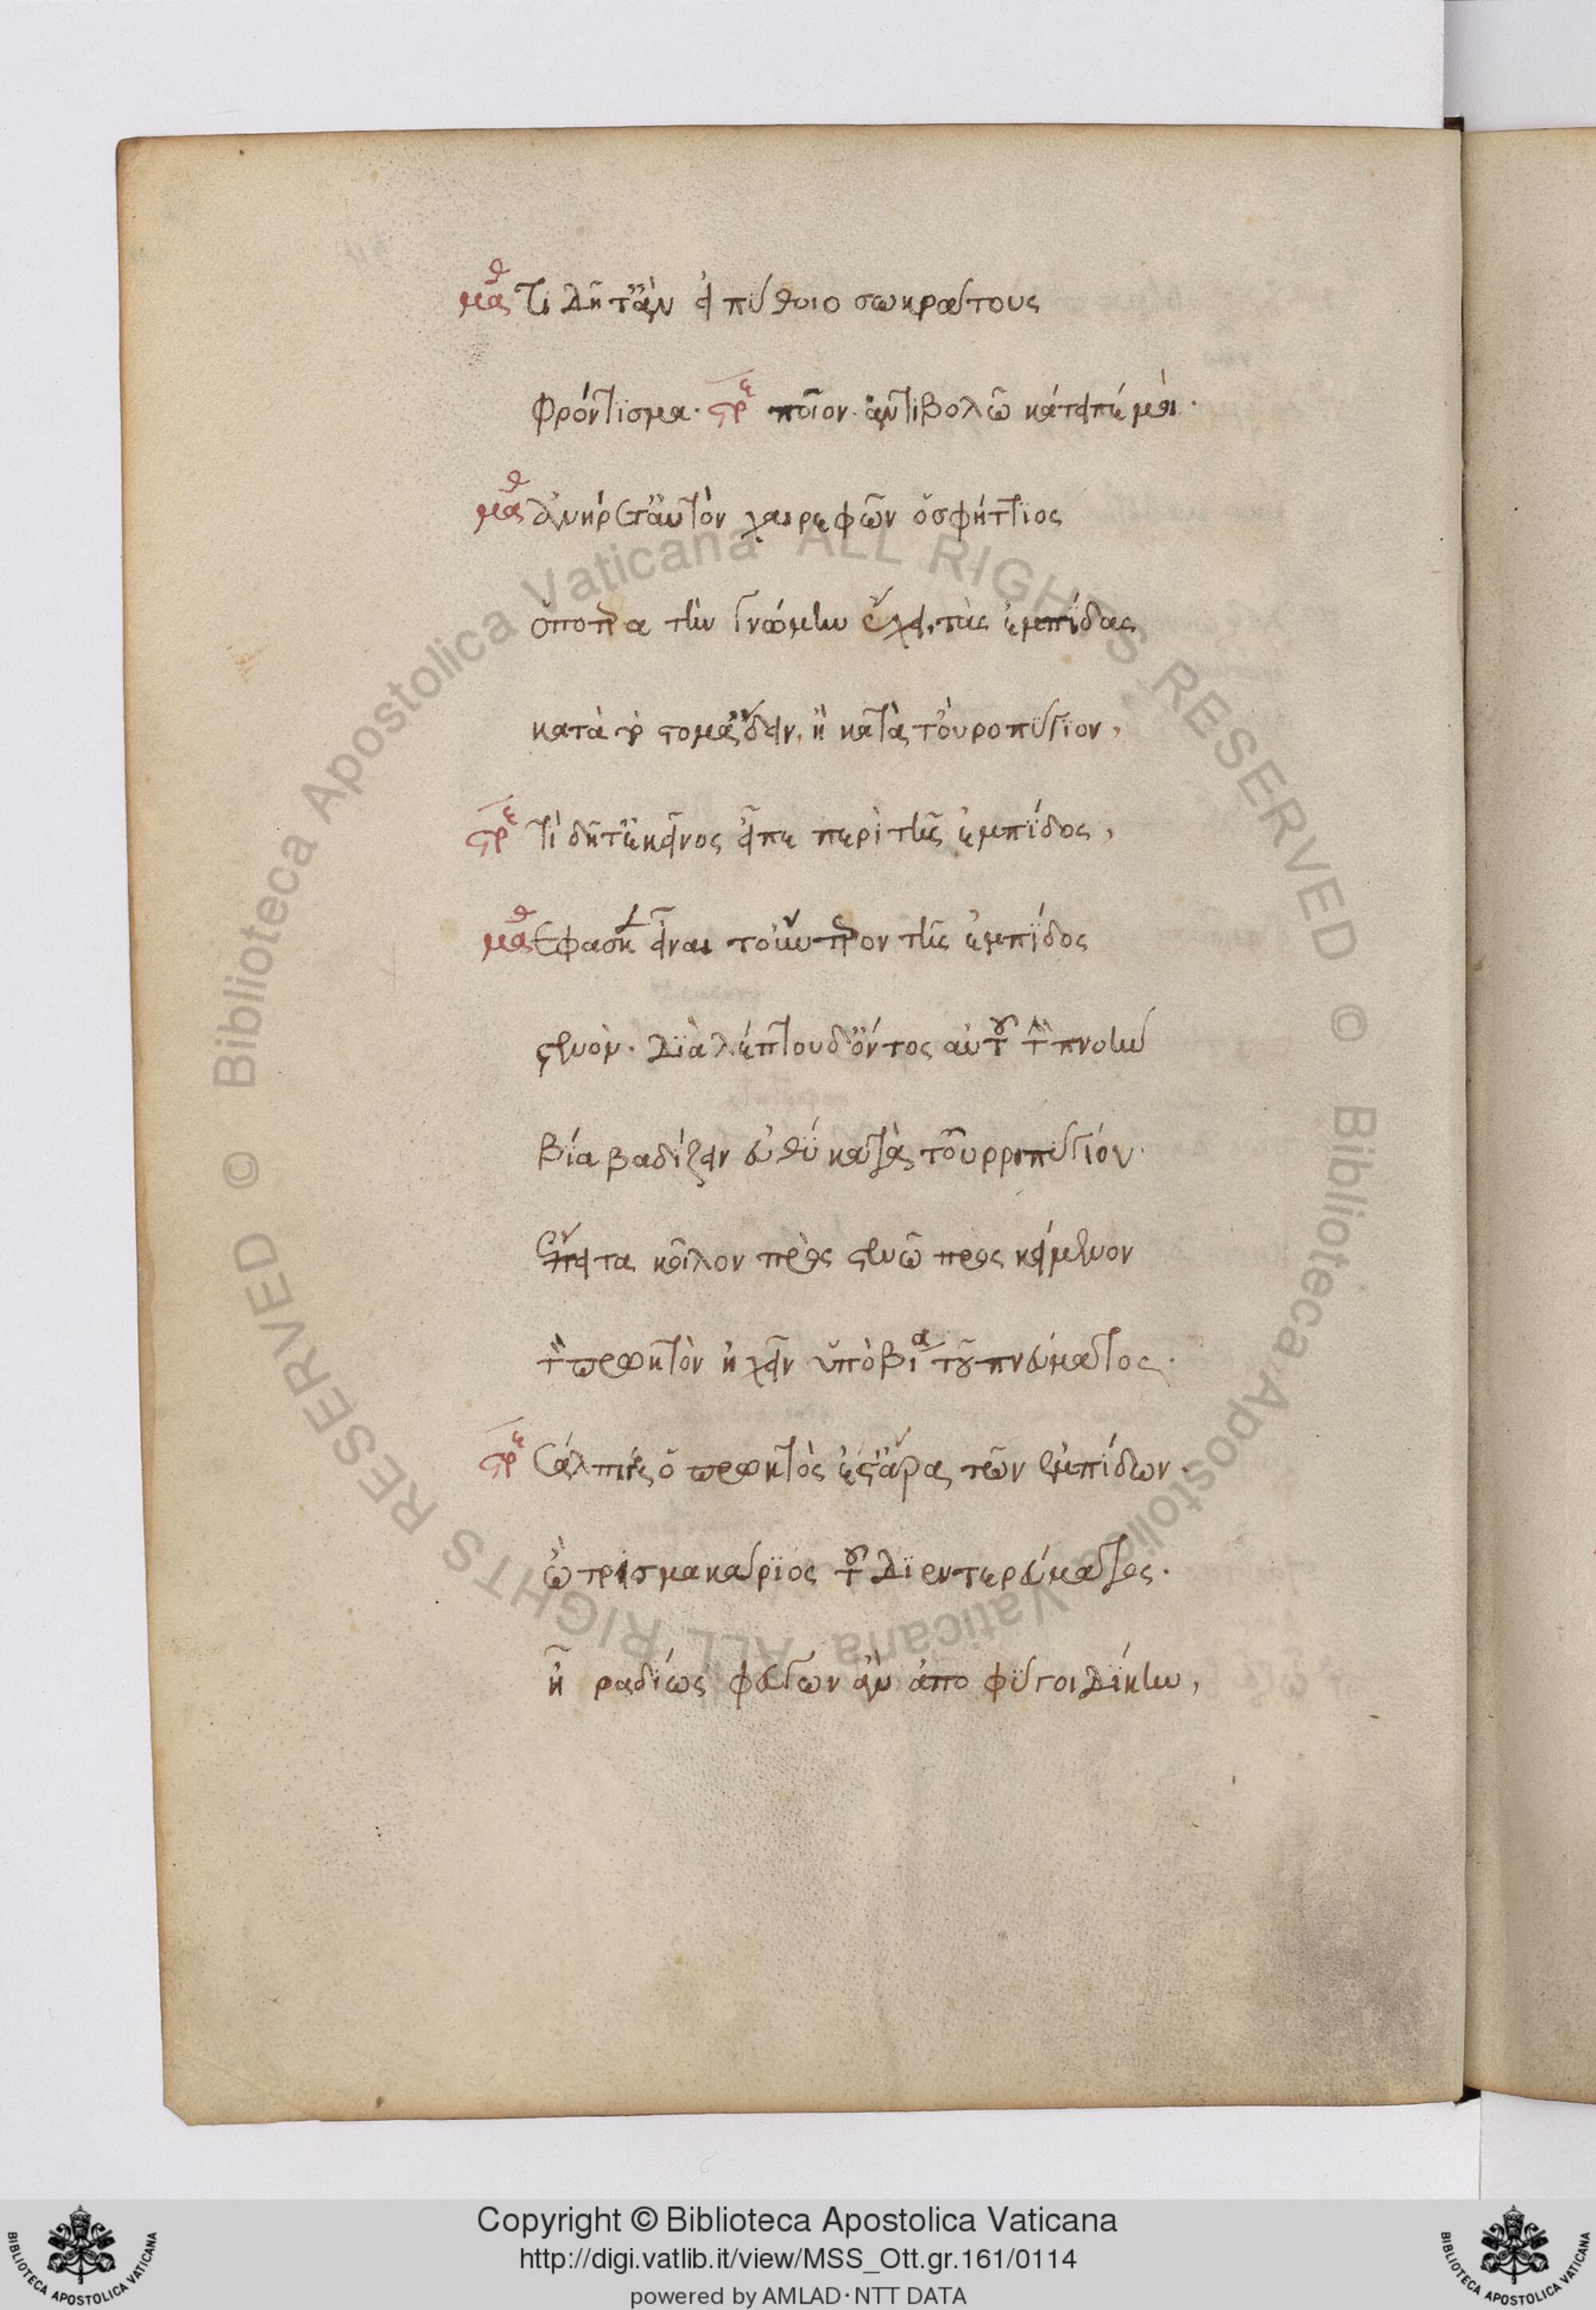 μαθ Τί δῆτ' ἂν εἰ πύθοιο σωκράτους
Φρόντισμα· στρε ποῖον· ἀντιβολῶ κάτειπέ μοι·
μαθ ἀνήρετ' αὐτὸν χαιρεφῶν ὁ σφήττιος
ὁπότερα τὴν γνώμην ἔχει, τὰς ἐμπίδας
κατὰ τὸ στόμ' ἄδειν, ἢ κατὰ τ' οὐροπύγιον,
στρε Τί δῆτ' ἐκεῖνος εἶπε περὶ τῆς ἐμπίδος,
μαθ Ἔφασκεν εἶναι τοὔντερον τῆς ἐμπίδος
στενόν· διὰ λεπτοῦ δ' ὄντος αὐτοῦ τὴν πνοὴν
βία βαδίζειν εὐθὺ κατὰ τοὐρροπυγίου·
Ἔπειτα κοῖλον πρὸς στενῶ προσκείμενον
τὸν πρωκτὸν ἠχεῖν ὑπὸ βίας τοῦ πνεύματος·
στρε Σάλπιγξ ὁ πρωκτὸς ἐστ' ἄρα τῶν ἐμπίδων·
ὦ τρισμακάριος τοῦ διεντερεύματος·
ἦ ραδίως φεύγων ἂν ἀποφύγοι δίκην,
Copyright © Biblioteca Apostolica Vaticana
http://digi.vatlib.it/view/MSS_Ott.gr.161/0114
powered by AMLAD·NTT DATA
BIBLIOTECA APOSTOLICA VATICANA
BIBLIOTECA APOSTOLICA VATICANA
© Biblioteca Apostolica Vaticana ALL RIGHTS RESERVED
© Biblioteca Apostolica Vaticana ALL RIGHTS RESERVED